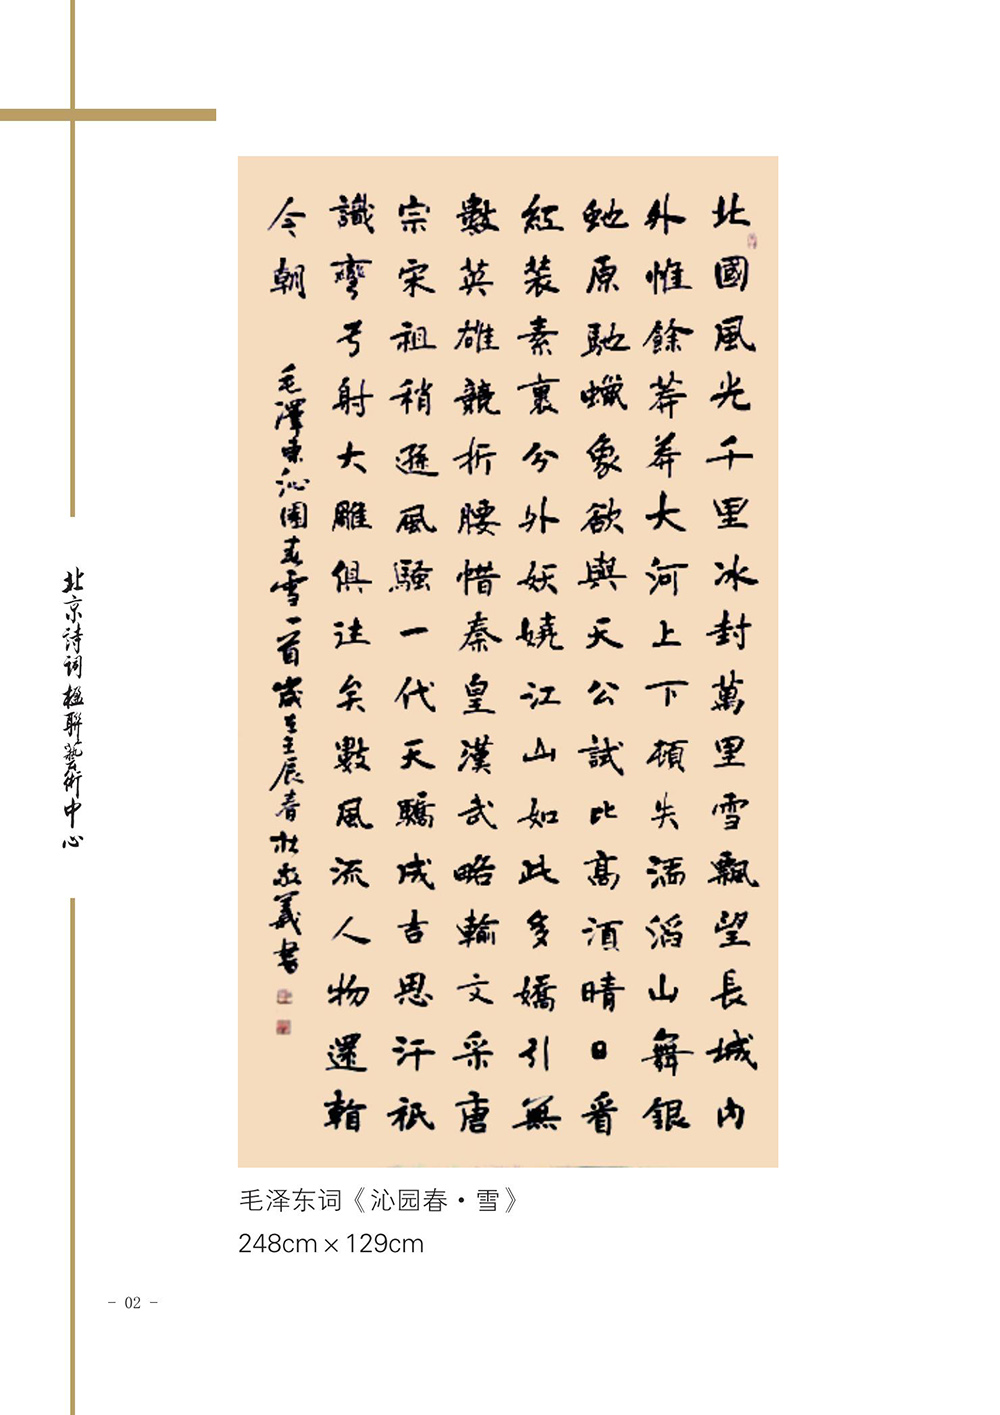 北國風光千里冰封萬里雪飄望長城內
外惟餘莽莽大河上下頓失滔滔山舞銀
蛇原馳蠟象欲與天公試比高須晴日看
紅裝素裹分外妖嬈江山如此多嬌引無
數英雄競折腰惜秦皇漢武略輸文采唐
宗宋祖稍遜風騷一代天驕成吉思汗祇
識彎弓射大雕俱往矣數風流人物還看
今朝
毛澤東沁園春雪一首歲在壬辰春杜敬義書
北京詩詞楹聯藝術中心
毛泽东词《沁园春·雪》
248cm×129cm
- 02 -